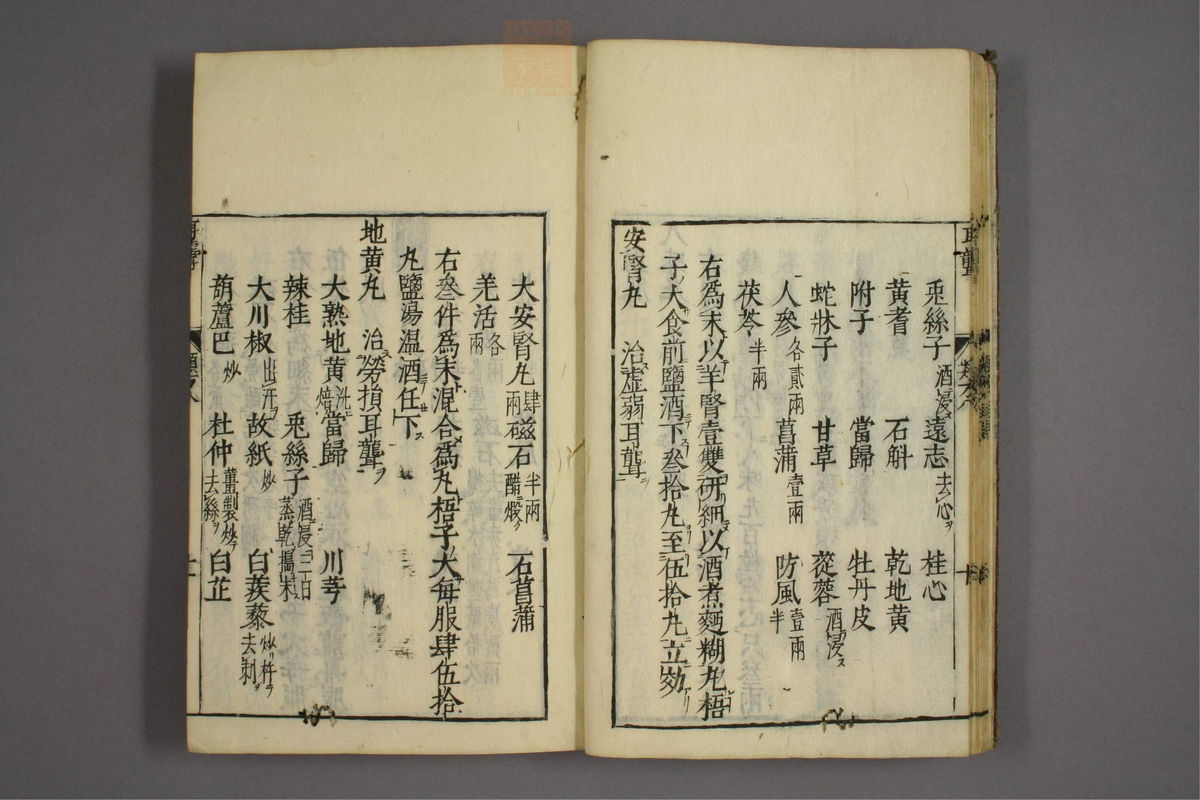 兎絲子酒浸 遠志去心ヲ 桂心
黄耆 石斛 乾地黄
附子 當歸 牡丹皮
蛇牀子 甘草 蓯蓉酒浸ス
人參各貳兩 菖蒲壹兩 防風壹兩半
茯苓半兩
右爲末以羊腎壹雙研細以酒煮麪糊丸梧
子大食前鹽酒下叁拾丸至伍拾丸立効アリ
安腎丸 治虚弱耳聾
大安腎丸肆兩 磁石半兩醋煅 石菖蒲
羌活各兩
右叁件爲末混合爲丸梧子大每服肆伍拾
丸鹽湯温酒任下
地黄丸 治勞損耳聾ヲ
大熟地黄洗焙 當歸 川芎
辣桂 兎絲子酒浸三日蒸乾搗末 
大川椒出汗ヲ 故紙炒 白蒺藜炒リ杵テ去刺ヲ
葫蘆巴炒 杜仲薑製炒テ去絲ヲ 白芷
耳聾